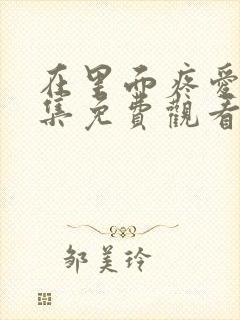 在里面疼爱
集免費觀看
邹美玲